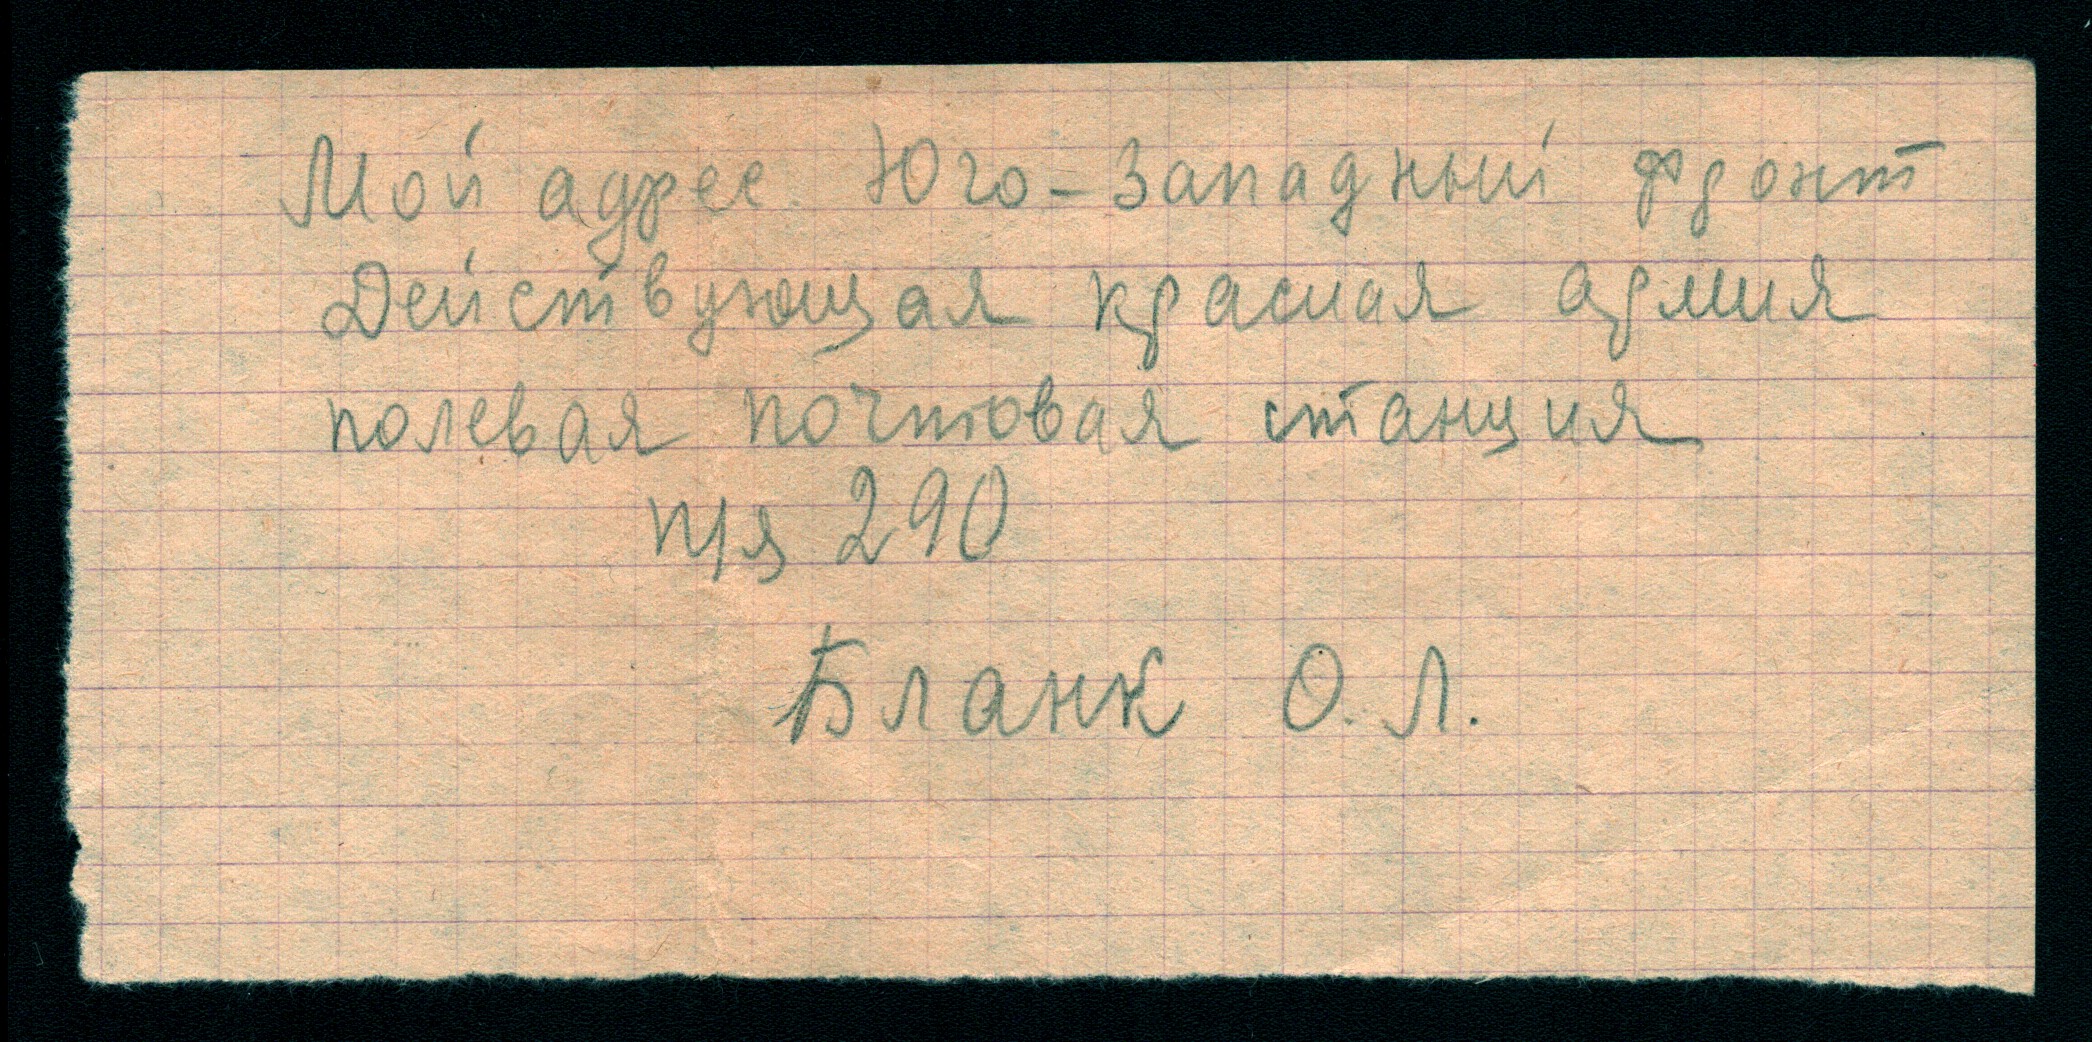 Мой адрес. Юго-Западный фронт
Действующая красная армия
полевая почтовая станция
п/я 290
Бланк О. Л.